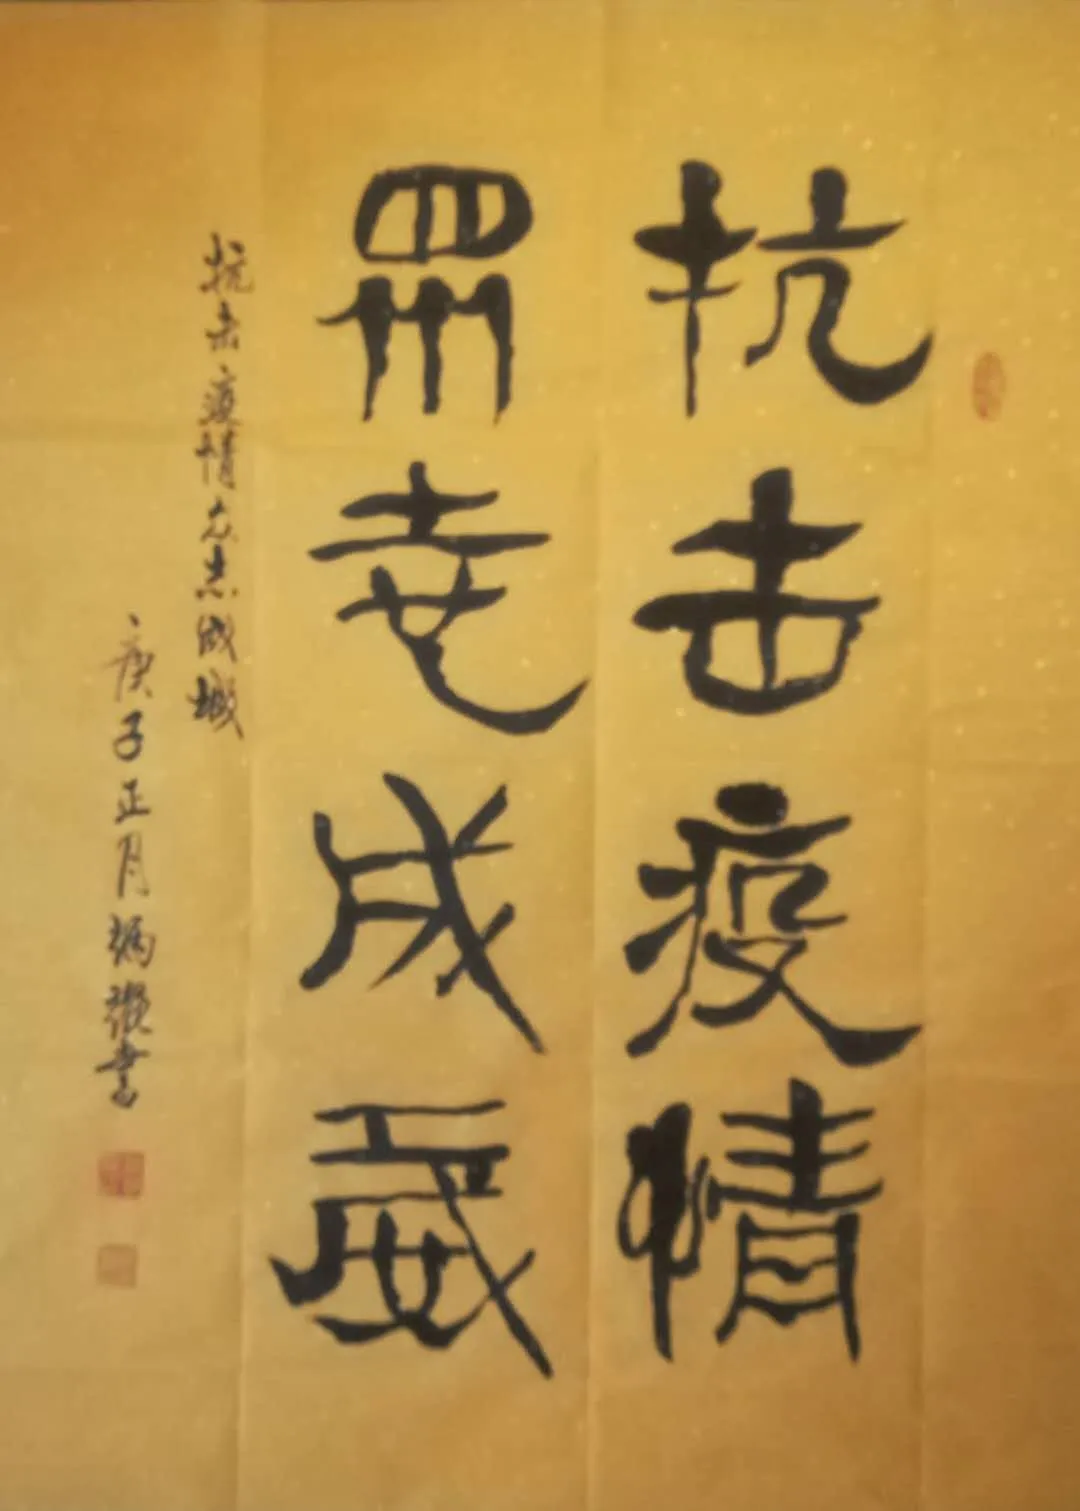 抗击疫情
眾志成城
抗击疫情众志成城
庚子正月書